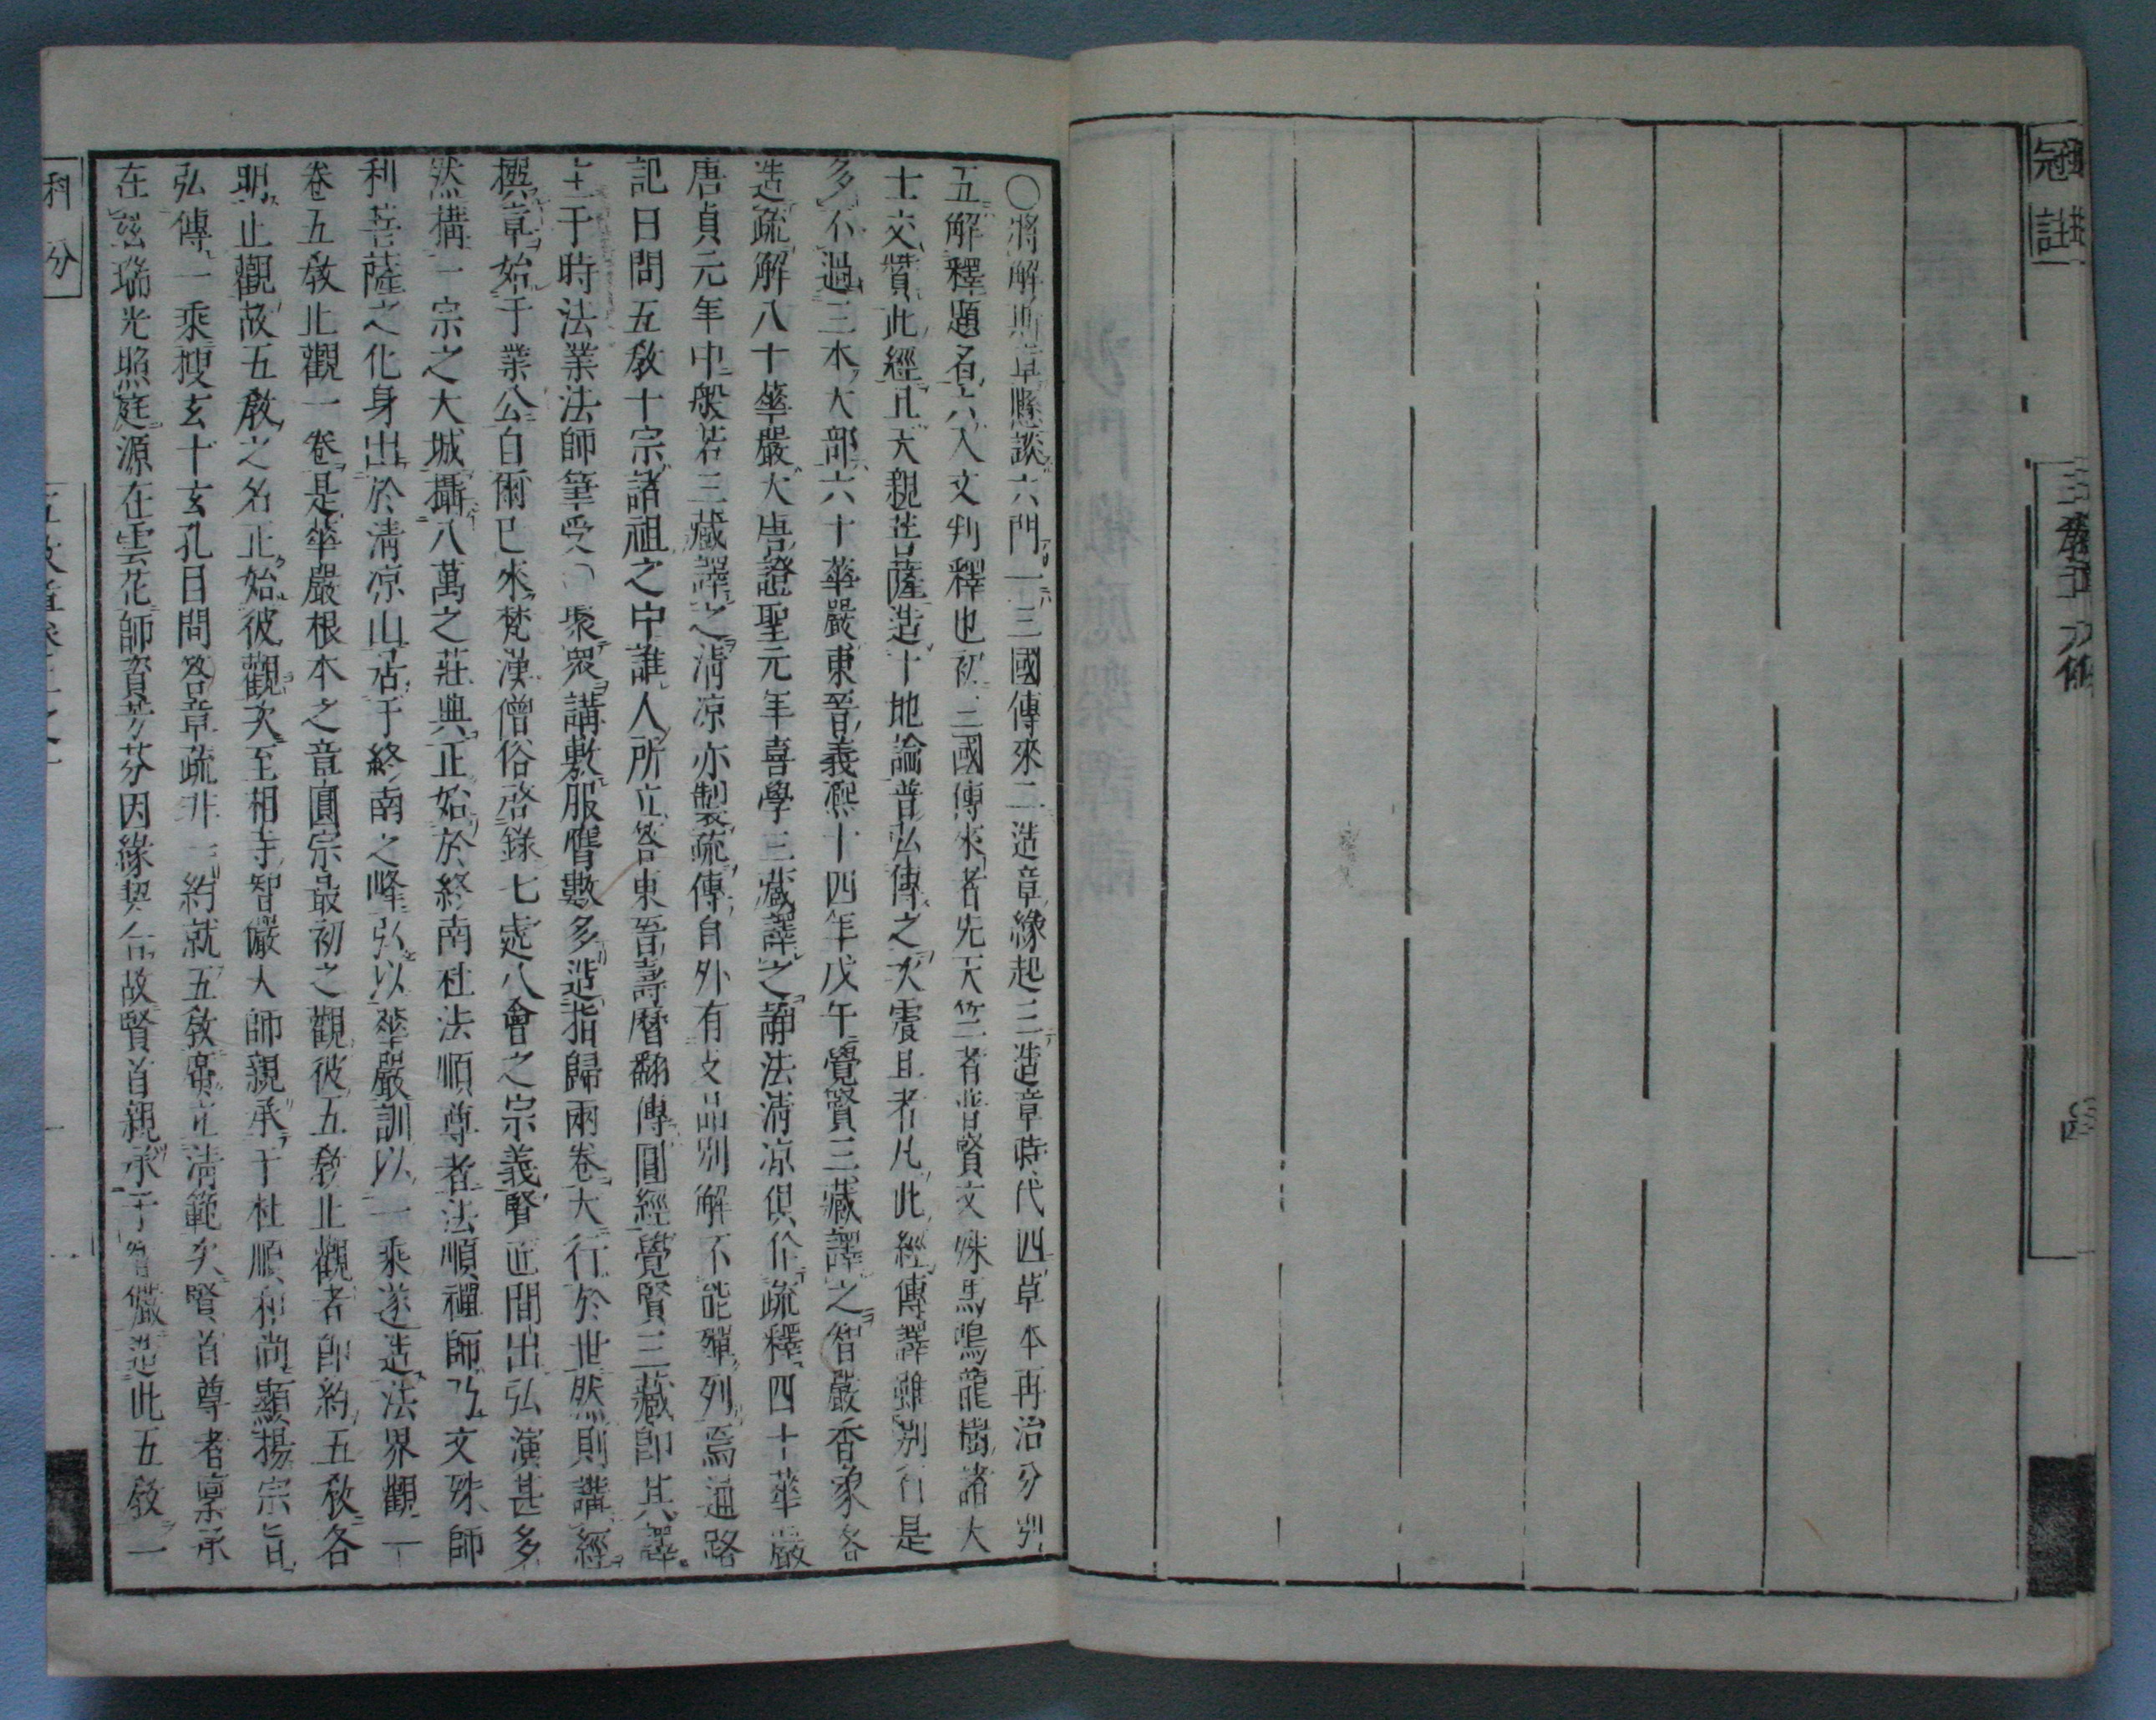 冠註
○將解斯章懸談六門一三國傳來二造章緣起三造章時代四草本再治分判
五解釋題名六入文判釋也初三國傳來者先天竺者普賢文殊馬鳴龍樹諸大
士交贊此經且天親菩薩造十地論普弘傳之次震旦者凡此經傳譯雖別行是
多不過三本大部六十華嚴東晉義熙十四年戊午覺賢三藏譯之智嚴香象各
造疏解八十華嚴大唐證聖元年喜學三藏譯之靜法清凉俱作疏釋四十華嚴
唐貞元年中般若三藏譯之清凉亦製疏傳自外有支品別解不能殫列焉通路
記曰問五敎十宗諸祖之中誰人所立答東晉壽曆翻傳圓經覺賢三藏卽其譯
主于時法業法師筆受聚衆講敷服膺數多造指歸兩卷大行於世然則講經
撰章始于業公自爾已來梵漢僧俗啓錄七處八會之宗義賢近間出弘演甚多
然構一宗之大城攝八萬之莊典正始於終南杜法順尊者法順禪師乃文殊師
利菩薩之化身出於清凉山居于終南之峰弘以華嚴訓以一乘遂造法界觀一
卷五敎止觀一卷是華嚴根本之章圓宗最初之觀彼五敎止觀者卽約五敎各
明止觀故五敎之名正始彼觀次至相寺智儼大師親承于杜順和尚顯揚宗旨
弘傳一乘搜玄十玄孔目問答章疏非一約就五敎廣立清範矣賢首尊者稟承
在茲瑞光照庭源在雲花師資芳芬因緣契合故賢首親承于智儼造此五敎一
科分